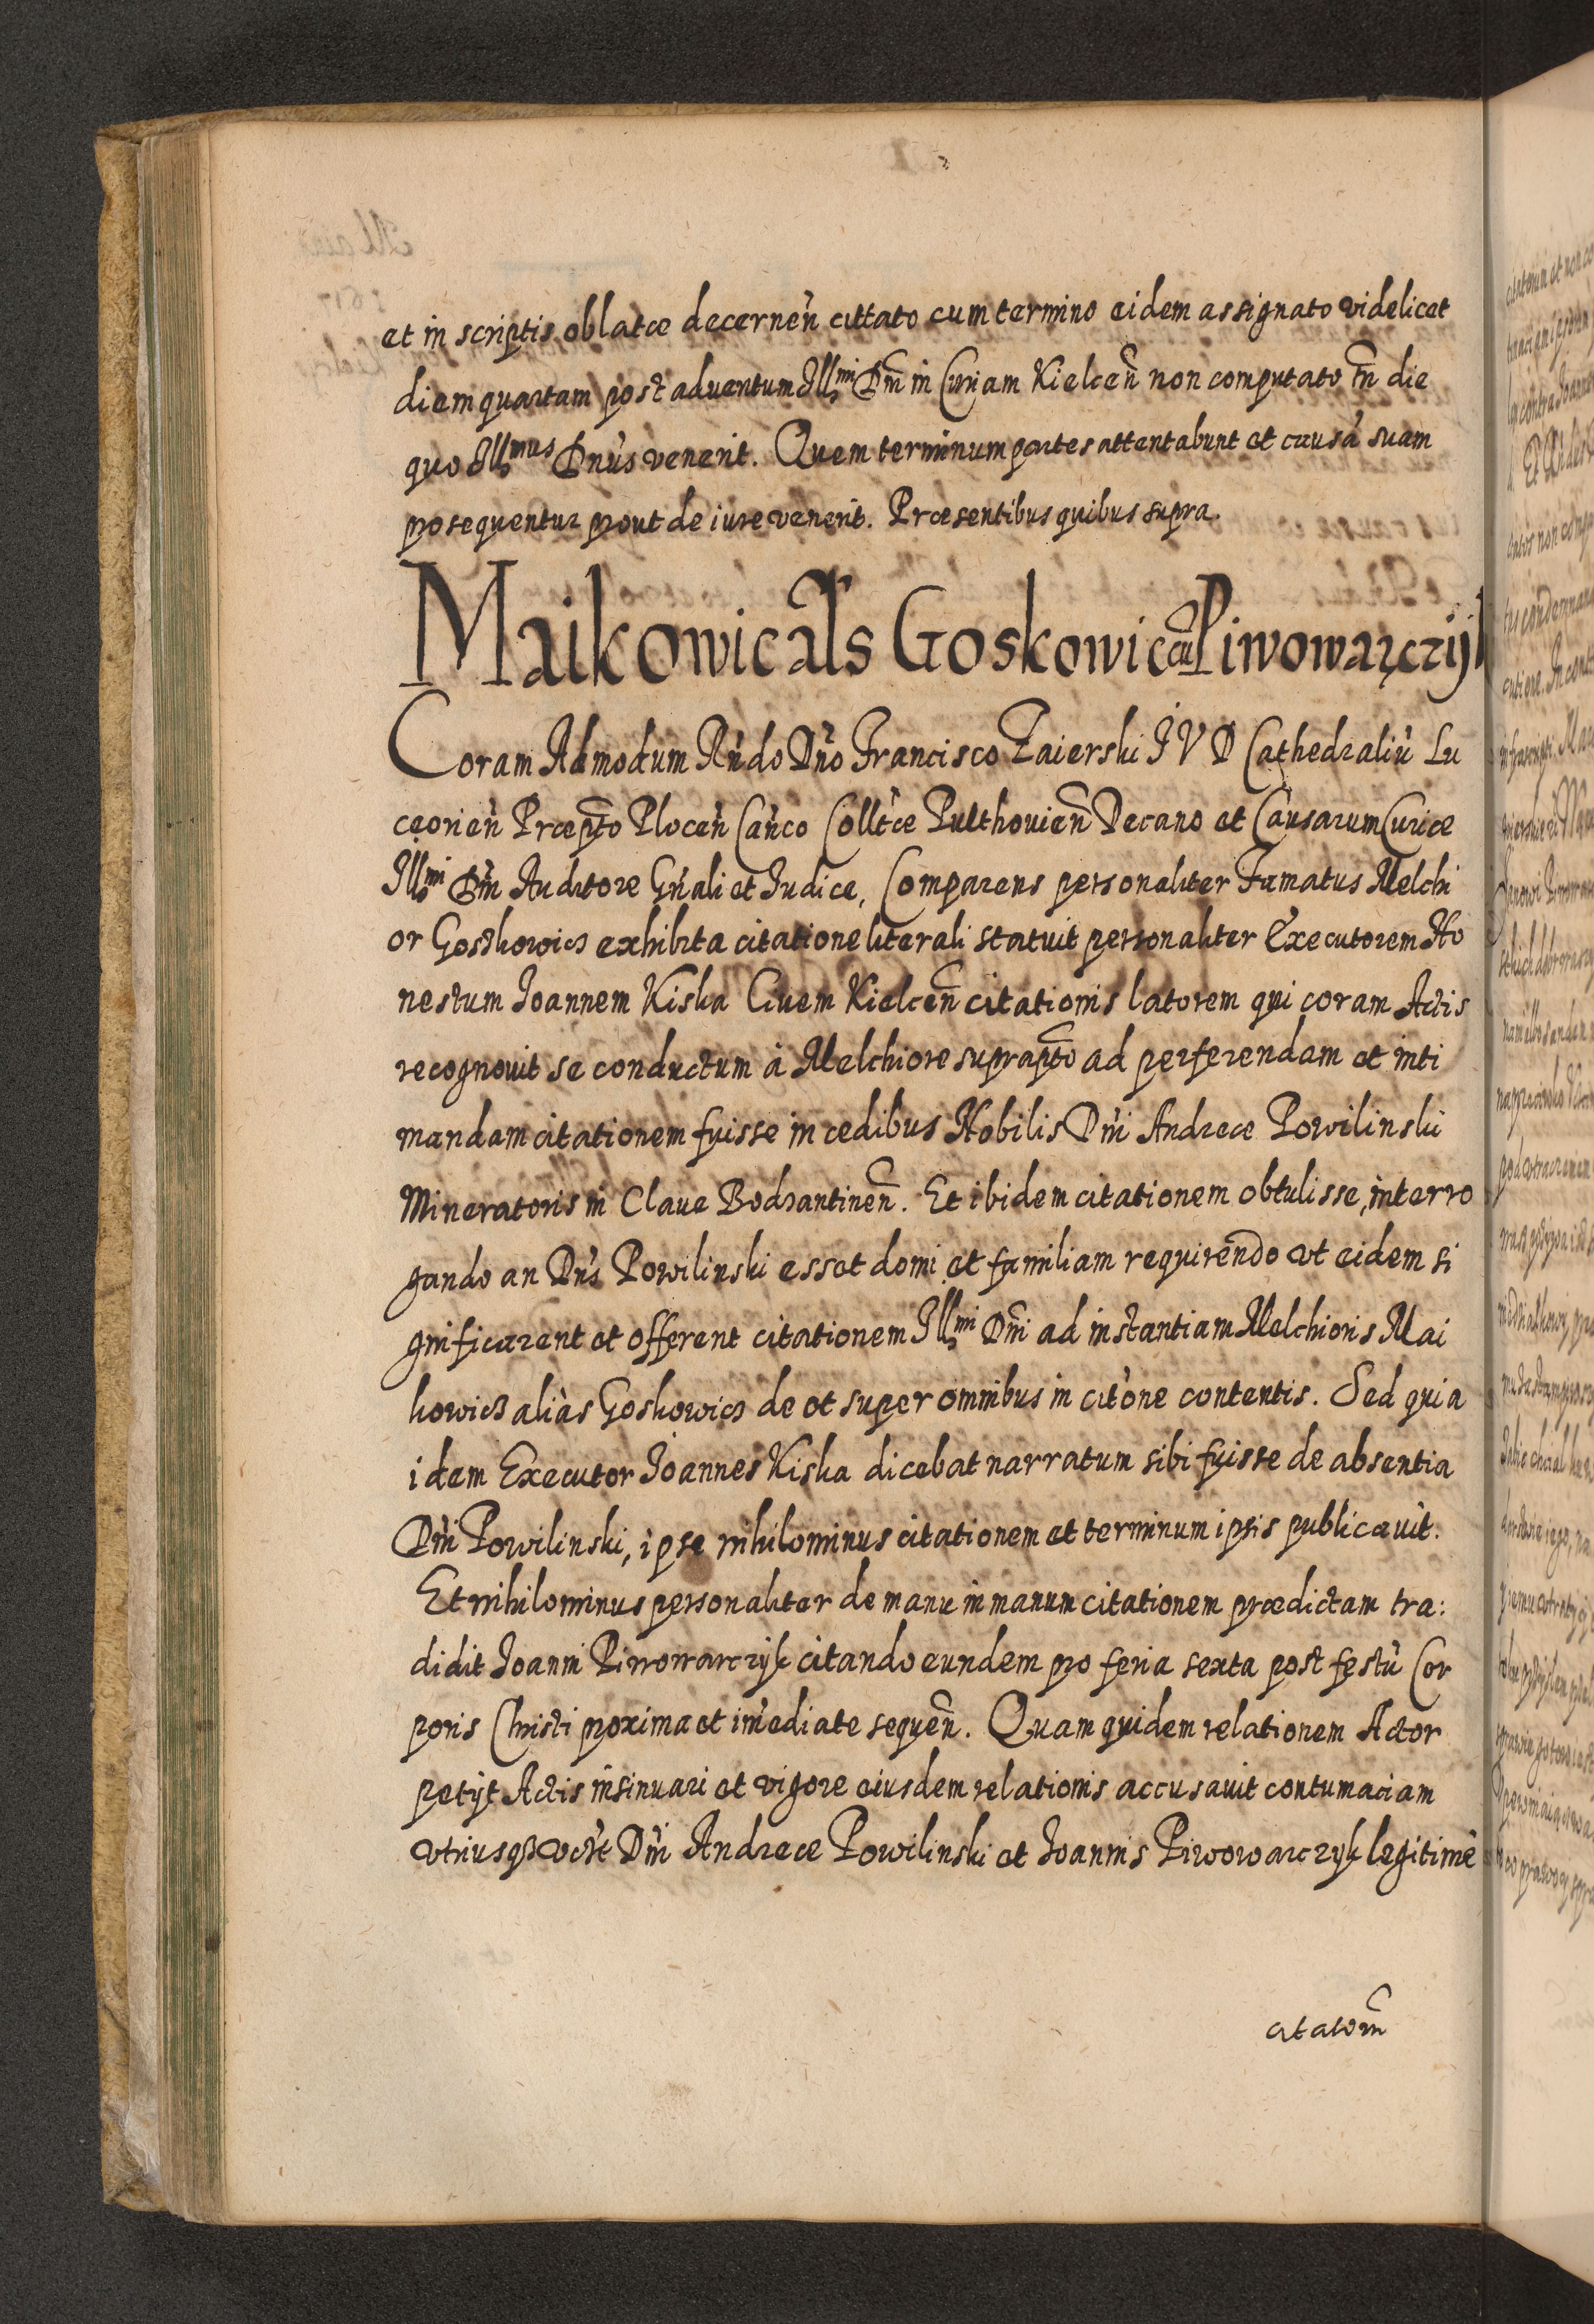 et in scriptis oblatæ decerneñ cittato cum termino eidem assignato videlicet
diem quartam post adventum Illmi Dñi in Curiam Kielceñ non computato tñ die
quo Illmus Dñus venerit. Quem terminum partes attentabunt et causã suam
prosequentur prout de iure venerit. Præsentibus quibus supra.
Maikowic als Goskowic cũ Piwowarczijk
Coram Admodum Rñdo Dño Francisco Zaierski I V D Cathedraliũ Lu
ceorieñ Præpto Ploceñ Canco Colltæ Pulthovieñ Decano et Causarum Curiæ
Illmi Dñi Auditore Gñali et Iudice, Comparens personaliter Famatus Melchi
or Gosthowicz exhibita citatione literali statuit personaliter Executorem Ho
nestum Ioannem Kiska Civem Kielceñ citationis latorem qui coram Actis
recognovit se conductum à Melchiore suprapto ad perferendam et inti
mandam citationem fuisse in ædibus Nobilis Dñi Andreæ Powilinski
Mineratoris in Clave Bodzantineñ. Et ibidem citationem obtulisse, interro
gando an Dñs Powilinski esset domi et familiam requirendo ut eidem si
gnificarent et offerent citationem Illmi Dñi ad instantiam Melchioris Mai
kowicz aliàs Goskowicz de et super omnibus in citõne contentis. Sed quia
idem Executor Ioannes Kiska dicebat narratum sibi fuisse de absentia
Dñi Powilinski, ipse nihilominus citationem et terminum ipsis publicavit.
Et nihilominus personaliter de manu in manum citationem prædictam tra:
didit Ioanni Piwowarczyk citando eundem pro feria sexta post festũ Cor
poris Christi proxima et imediate sequeñ. Quam quidem relationem Actor
petyt Actis insinuari et vigore eiusdem relationis accusavit contumaciam
utriusq3 Dñi Andreæ Powilinski et Ioannis Piwowarczyk legitimè
citatorũ